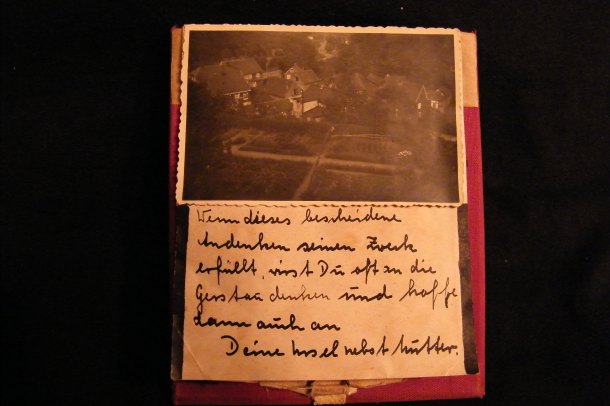 Wenn dieses bescheidene
Andenken seinen Zweck
erfüllt, wirst Du oft an die
denken und hoffe
dann auch an
Deine nebst Mutter.